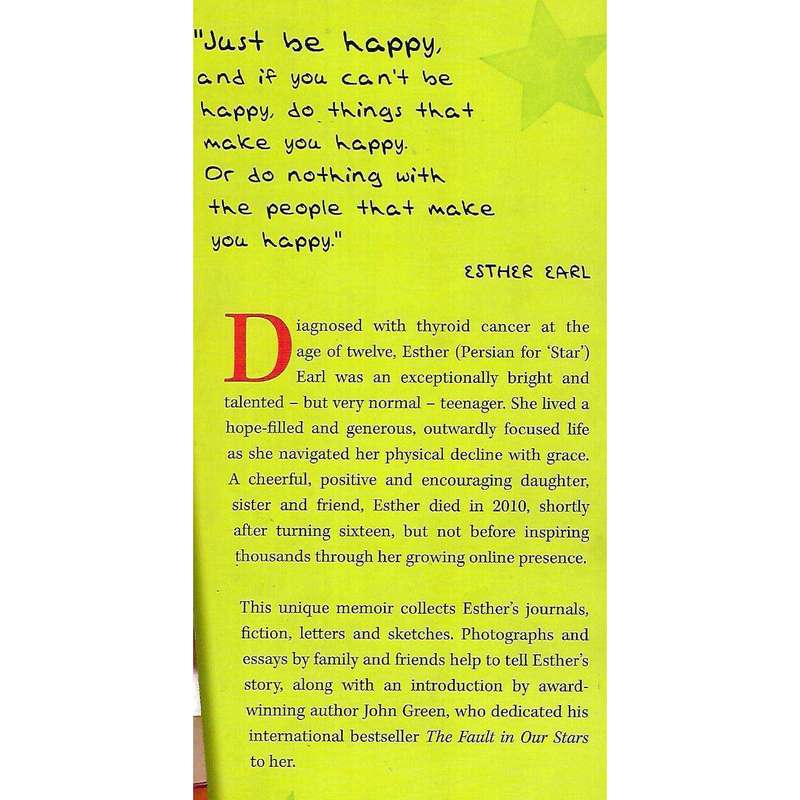 "Just be happy,
and if you can't be
happy, do things that
make you happy.
Or do nothing with
the people that make
you happy."
ESTHER EARL
Diagnosed with thyroid cancer at the
age of twelve, Esther (Persian for ‘Star’)
Earl was an exceptionally bright and
talented – but very normal – teenager. She lived a
hope-filled and generous, outwardly focused life
as she navigated her physical decline with grace.
A cheerful, positive and encouraging daughter,
sister and friend, Esther died in 2010, shortly
after turning sixteen, but not before inspiring
thousands through her growing online presence.
This unique memoir collects Esther’s journals,
fiction, letters and sketches. Photographs and
essays by family and friends help to tell Esther’s
story, along with an introduction by award-
winning author John Green, who dedicated his
international bestseller The Fault in Our Stars
to her.